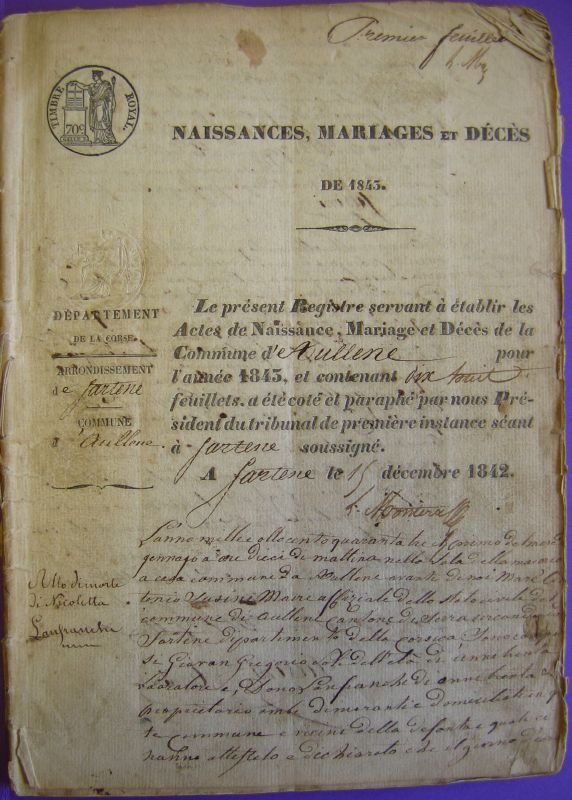 Premier feuillet
TIMBRE ROYAL.
70c
NAISSANCES, MARIAGES ET DÉCÈS
DE 1843.
DÉPARTEMENT
DE LA CORSE.
ARRONDISSEMENT
de Sartene
COMMUNE
d'Aullene
Le présent Registre servant à établir les
Actes de Naissance, Mariage et Décès de la
Commune d'Aullene pour
l'année 1843, et contenant dix huit
feuillets, a été coté et paraphé par nous Pré-
sident du tribunal de première instance séant
à Sartene soussigné.
A Sartene le 15 décembre 1842.
Atto di morte
di Nicoletta
Lanfranchi
L'anno mille otto cento quaranta tre il
gennajo a ore dieci di mattina nella Sala della
a casa commune da Aullene avante di noi
Susini Maire officiale dello Stato civile della
commune di Aullene Cantone di Serra
Sartene dipartimento della Corsica Sono
se Giovan Gregorio dell'eta di
lavoratore e
proprietario ambi dimoranti e domiciliati in
te commune e vicini della defonta quali
hanno attestato e dichiarato che il giorno